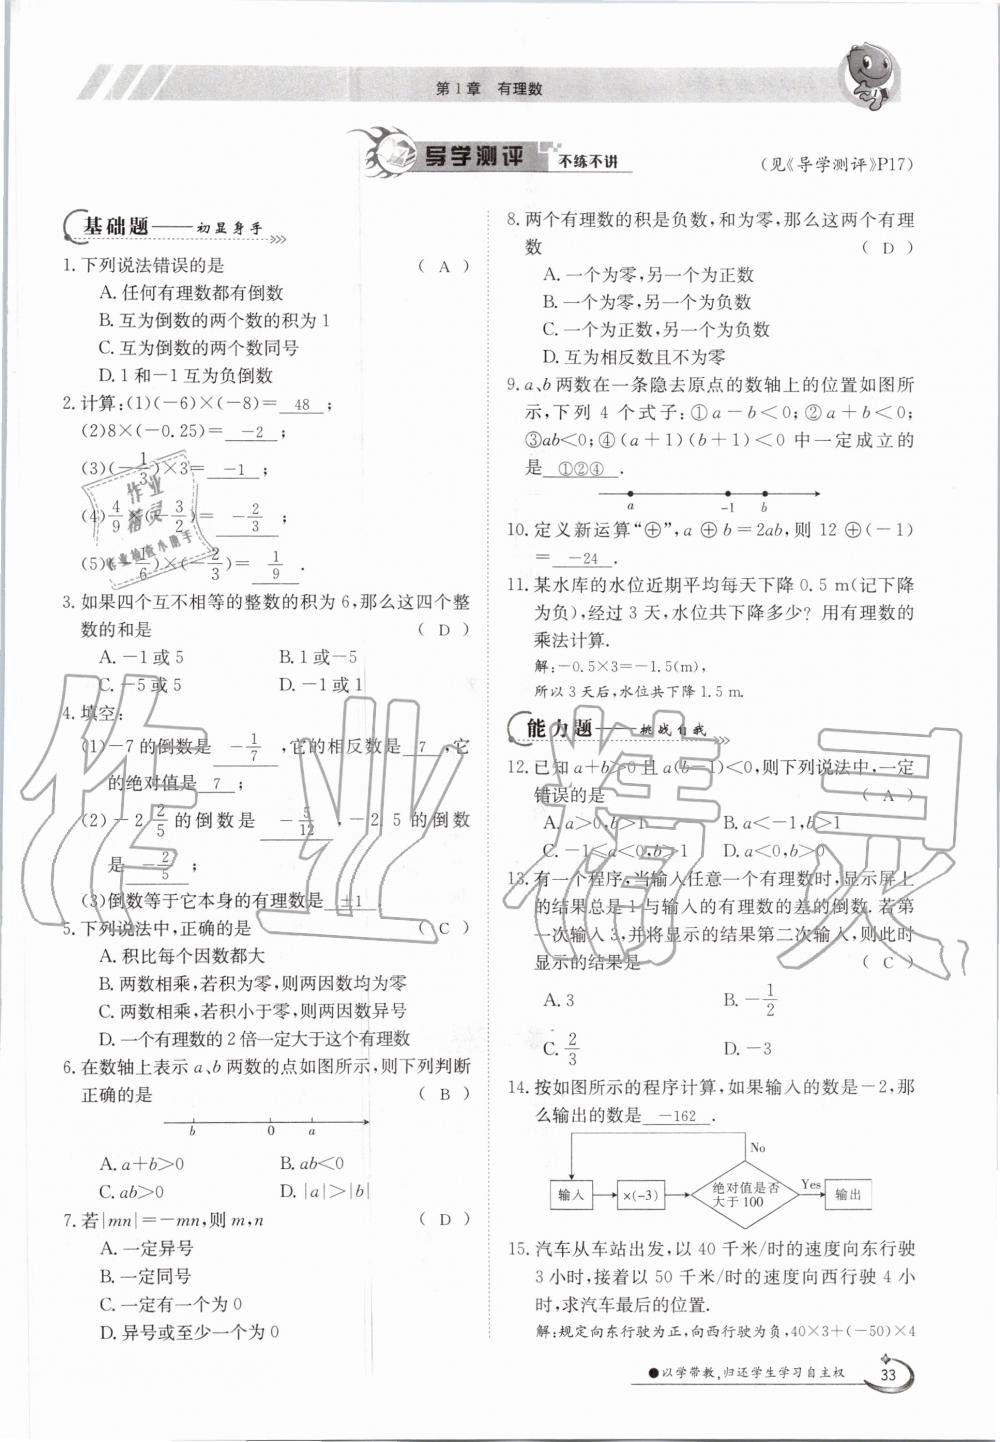 第1章 有理数
导学测评 不练不讲
(见《导学测评》P17)
基础题——初显身手
1.下列说法错误的是 ( A )
A.任何有理数都有倒数
B.互为倒数的两个数的积为1
C.互为倒数的两个数同号
D.1和-1互为负倒数
2.计算:(1)(-6)×(-8)= 48 ;
(2)8×(-0.25)= -2 ;
(3)(-1/3)×3= -1 ;
(4)4/9×(-3/2)= -2/3 ;
(5)(-1/6)×(-2/3)= 1/9 .
3.如果四个互不相等的整数的积为6,那么这四个整
数的和是 ( D )
A.-1或5 B.1或-5
C.-5或5 D.-1或1
4.填空:
(1)-7的倒数是 -1/7 ,它的相反数是 7 ,它
的绝对值是 7 ;
(2)-2 2/5的倒数是 -5/12 ,-2.5的倒数
是 -2/5 ;
(3)倒数等于它本身的有理数是 ±1 .
5.下列说法中,正确的是 ( C )
A.积比每个因数都大
B.两数相乘,若积为零,则两因数均为零
C.两数相乘,若积小于零,则两因数异号
D.一个有理数的2倍一定大于这个有理数
6.在数轴上表示a、b两数的点如图所示,则下列判断
正确的是 ( B )
b 0 a
A.a+b>0 B.ab<0
C.ab>0 D.|a|>|b|
7.若|mn|=-mn,则m,n ( D )
A.一定异号
B.一定同号
C.一定有一个为0
D.异号或至少一个为0
8.两个有理数的积是负数,和为零,那么这两个有理
数 ( D )
A.一个为零,另一个为正数
B.一个为零,另一个为负数
C.一个为正数,另一个为负数
D.互为相反数且不为零
9.a、b两数在一条隐去原点的数轴上的位置如图所
示,下列4个式子:①a-b<0;②a+b<0;
③ab<0;④(a+1)(b+1)<0中一定成立的
是 ①②④ .
a -1 b
10.定义新运算“⊕”,a⊕b=2ab,则12⊕(-1)
= -24 .
11.某水库的水位近期平均每天下降0.5 m(记下降
为负),经过3天,水位共下降多少?用有理数的
乘法计算.
解:-0.5×3=-1.5(m),
所以3天后,水位共下降1.5 m.
能力题——挑战自我
12.已知a+b>0且a(b-1)<0,则下列说法中,一定
错误的是 ( A )
A.a>0,b>1 B.a<-1,b>1
C.-1≤a<0,b>1 D.a<0,b>0
13.有一个程序,当输入任意一个有理数时,显示屏上
的结果总是1与输入的有理数的差的倒数.若第
一次输入3,并将显示的结果第二次输入,则此时
显示的结果是 ( C )
A.3 B.-1/2
C.2/3 D.-3
14.按如图所示的程序计算,如果输入的数是-2,那
么输出的数是 -162 .
No
输入 ×(-3) 绝对值是否大于100 Yes 输出
15.汽车从车站出发,以40千米/时的速度向东行驶
3小时,接着以50千米/时的速度向西行驶4小
时,求汽车最后的位置.
解:规定向东行驶为正,向西行驶为负,40×3+(-50)×4
●以学带教,归还学生学习自主权
33
作业精灵
作业
精灵
作业检查小助手